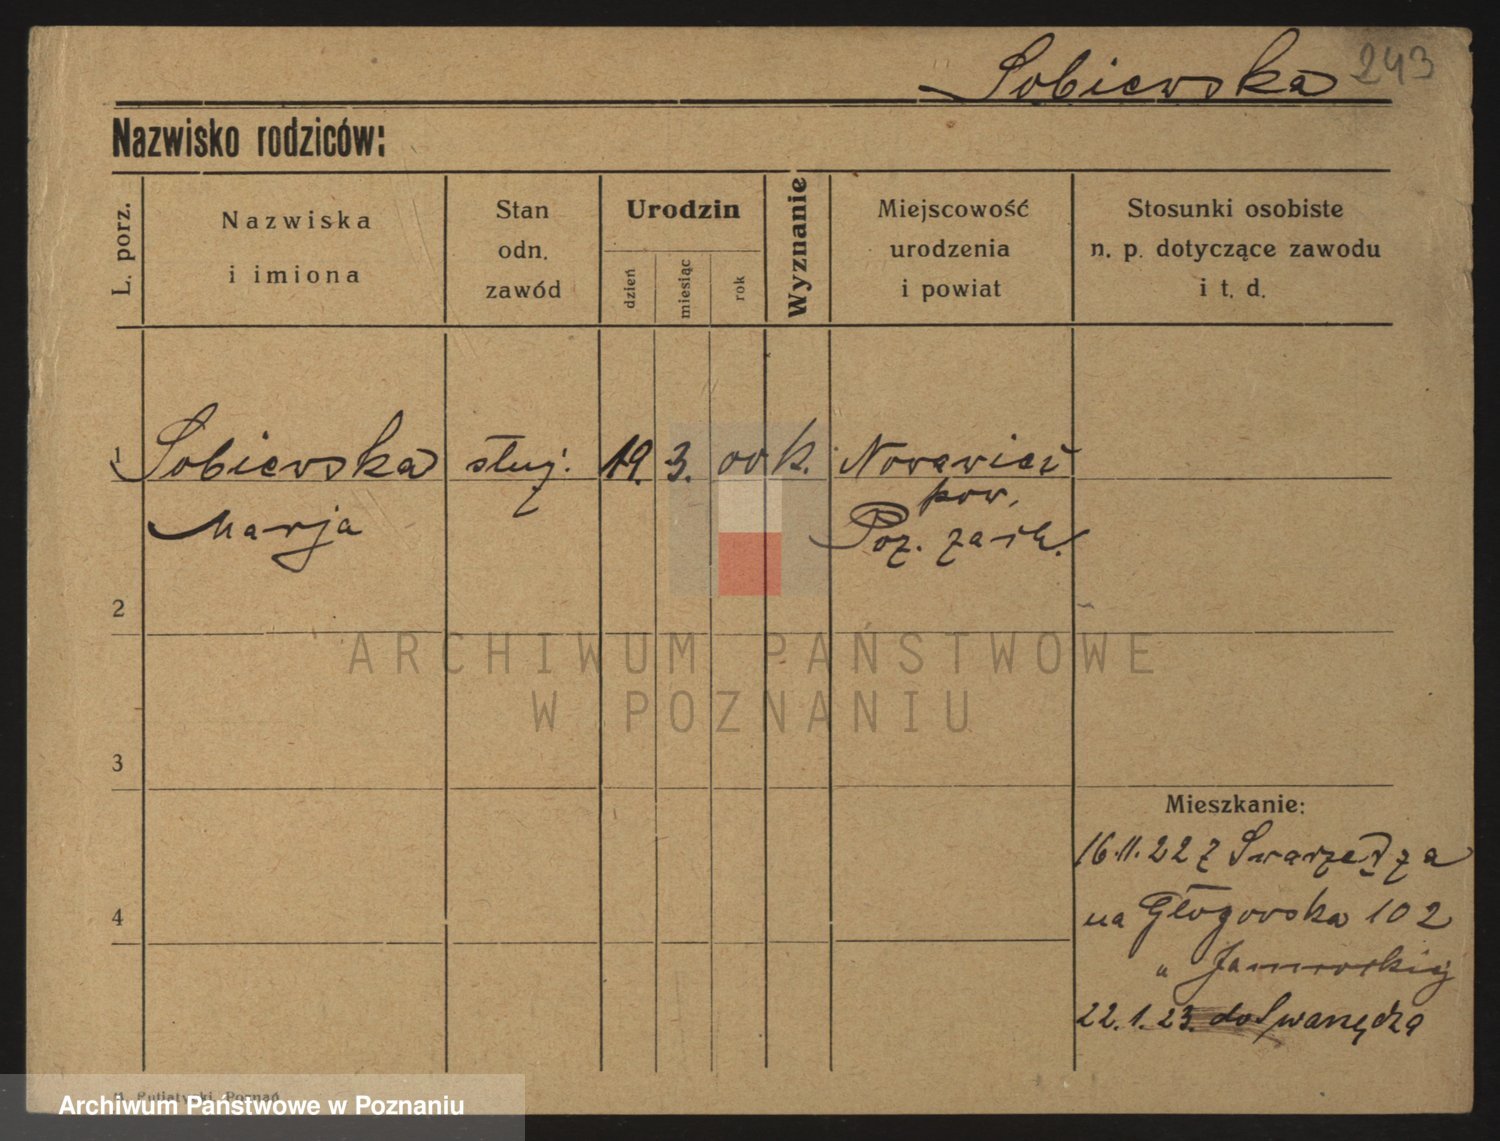 Sobiewska 243
Nazwisko rodziców:
L. porz.
Nazwiska
i imiona
Stan
odn.
zawód
Urodzin
dzień
miesiąc
rok
Wyznanie
Miejscowość
urodzenia
i powiat
Stosunki osobiste
n. p. dotyczące zawodu
i t. d.
1 Sobiewska służ. 19. 3. 00 k. Nowawieś
pow.
Marja Poz. zach.
2
ARCHIWUM PAŃSTWOWE
W POZNANIU
3
Mieszkanie:
16.11.22 z Swarzędza
4 na Głogowska 102
"
22.1.23. do Swarzędza
Poznań
Archiwum Państwowe w Poznaniu